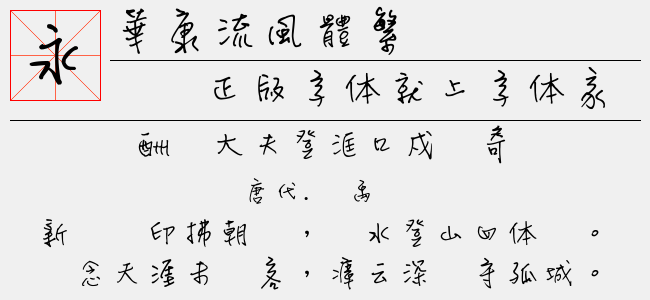 永
華康流風體繁
正版字体就上字体家
酬 大夫登洭口戍 寄
唐代. 禹
新 印拂朝 ， 水登山四体 。
念天涯未 客，瘴云深 守孤城。